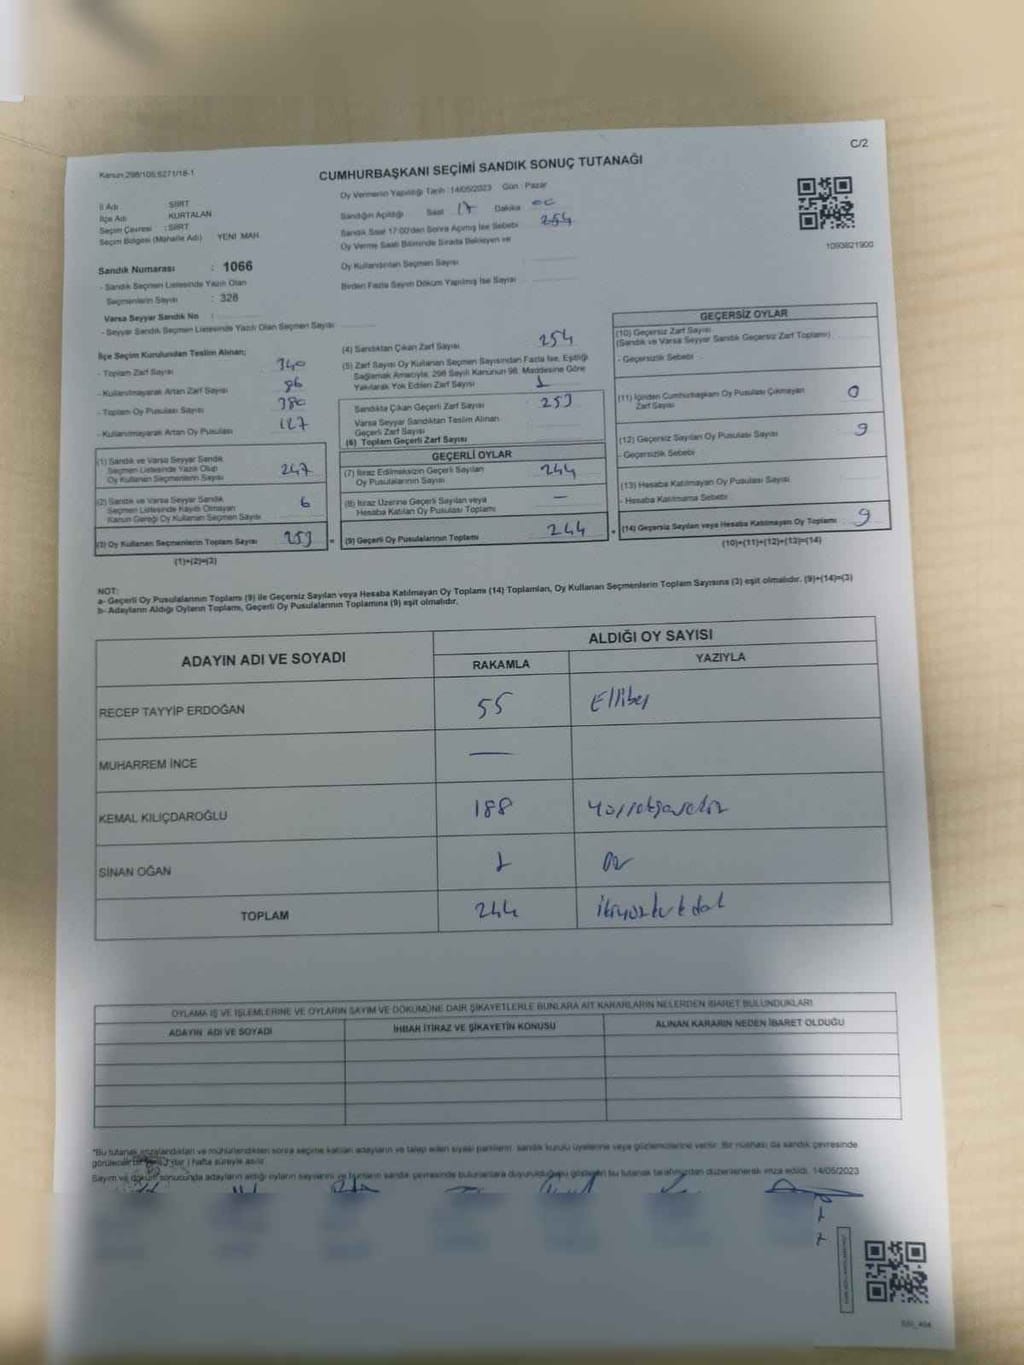 C/2
Kanun:298/105,6271/18-1
CUMHURBAŞKANI SEÇİMİ SANDIK SONUÇ TUTANAĞI
Oy Vermenin Yapıldığı Tarih :14/05/2023 Gün : Pazar
İl Adı : SİİRT
İlçe Adı : KURTALAN
Seçim Çevresi : SİİRT
Seçim Bölgesi (Mahalle Adı) : YENİ MAH.
Sandığın Açıldığı Saat 17 Dakika 00
Sandık Saat 17:00'den Sonra Açılmış İse Sebebi 254
Oy Verme Saati Bitiminde Sırada Bekleyen ve
Oy Kullandırılan Seçmen Sayısı :
Birden Fazla Sayım Döküm Yapılmış İse Sayısı :
1093821900
Sandık Numarası : 1066
- Sandık Seçmen Listesinde Yazılı Olan
Seçmenlerin Sayısı : 328
Varsa Seyyar Sandık No :
- Seyyar Sandık Seçmen Listesinde Yazılı Olan Seçmen Sayısı :
İlçe Seçim Kurulundan Teslim Alınan;
- Toplam Zarf Sayısı 340
- Kullanılmayarak Artan Zarf Sayısı 86
- Toplam Oy Pusulası Sayısı 380
- Kullanılmayarak Artan Oy Pusulası 127
(1) Sandık ve Varsa Seyyar Sandık
Seçmen Listesinde Yazılı Olup
Oy Kullanan Seçmenlerin Sayısı 247
(2) Sandık ve Varsa Seyyar Sandık
Seçmen Listesinde Kayıtlı Olmayan
Kanun Gereği Oy Kullanan Seçmen Sayısı 6
(3) Oy Kullanan Seçmenlerin Toplam Sayısı 253
(1)+(2)=(3)
(4) Sandıktan Çıkan Zarf Sayısı 254
(5) Zarf Sayısı Oy Kullanan Seçmen Sayısından Fazla İse, Eşitliği
Sağlamak Amacıyla, 298 Sayılı Kanunun 98. Maddesine Göre
Yakılarak Yok Edilen Zarf Sayısı 1
Sandıkta Çıkan Geçerli Zarf Sayısı 253
Varsa Seyyar Sandıktan Teslim Alınan
Geçerli Zarf Sayısı
(6) Toplam Geçerli Zarf Sayısı
GEÇERLİ OYLAR
(7) İtiraz Edilmeksizin Geçerli Sayılan
Oy Pusulalarının Sayısı 244
(8) İtiraz Üzerine Geçerli Sayılan veya
Hesaba Katılan Oy Pusulası Toplamı —
= (9) Geçerli Oy Pusulalarının Toplamı 244
GEÇERSİZ OYLAR
(10) Geçersiz Zarf Sayısı
(Sandık ve Varsa Seyyar Sandık Geçersiz Zarf Toplamı)
- Geçersizlik Sebebi
(11) İçinden Cumhurbaşkanı Oy Pusulası Çıkmayan
Zarf Sayısı 0
(12) Geçersiz Sayılan Oy Pusulası Sayısı 9
- Geçersizlik Sebebi
(13) Hesaba Katılmayan Oy Pusulası Sayısı
- Hesaba Katılmama Sebebi
+ (14) Geçersiz Sayılan veya Hesaba Katılmayan Oy Toplamı 9
(10)+(11)+(12)+(13)=(14)
NOT:
a- Geçerli Oy Pusulalarının Toplamı (9) ile Geçersiz Sayılan veya Hesaba Katılmayan Oy Toplamı (14) Toplamları, Oy Kullanan Seçmenlerin Toplam Sayısına (3) eşit olmalıdır. (9)+(14)=(3)
b- Adayların Aldığı Oyların Toplamı, Geçerli Oy Pusulalarının Toplamına (9) eşit olmalıdır.
ADAYIN ADI VE SOYADI
ALDIĞI OY SAYISI
RAKAMLA YAZIYLA
RECEP TAYYİP ERDOĞAN 55 Ellibeş
MUHARREM İNCE —
KEMAL KILIÇDAROĞLU 188
SİNAN OĞAN 1
TOPLAM 244
OYLAMA İŞ VE İŞLEMLERİNE VE OYLARIN SAYIM VE DÖKÜMÜNE DAİR ŞİKAYETLERLE BUNLARA AİT KARARLARIN NELERDEN İBARET BULUNDUKLARI
ADAYIN ADI VE SOYADI İHBAR İTİRAZ VE ŞİKAYETİN KONUSU ALINAN KARARIN NEDEN İBARET OLDUĞU
*Bu tutanak imzalandıktan ve mühürlendikten sonra seçime katılan adayların ve talep eden siyasi partilerin sandık kurulu üyelerine veya gözlemcilerine verilir. Bir nüshası da sandık çevresinde
hafta süreyle asılır.
Sayım ve döküm sonucunda adayların aldığı oyların sayılarını ve bunların sandık çevresinde bulunanlara duyurulduğunu gösteren bu tutanak tarafımızdan düzenlenerek imza edildi. 14/05/2023